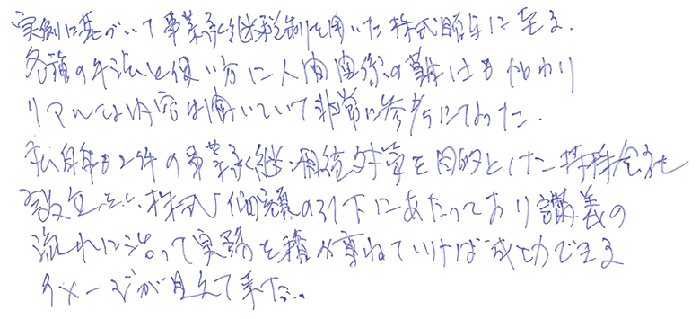 実例に基づいて事業承継税制を用いた株式贈与に至る、
各種の手法と使い方に人間関係の難しさも加わり
リアルな内容は聞いていて非常に参考になった。
私自身も2件の事業承継・相続対策を目的とした持株会社
設立、株式価額の引下にあたっており講義の
流れに沿って実務を積み重ねていけば成功できる
イメージが見えて来た。